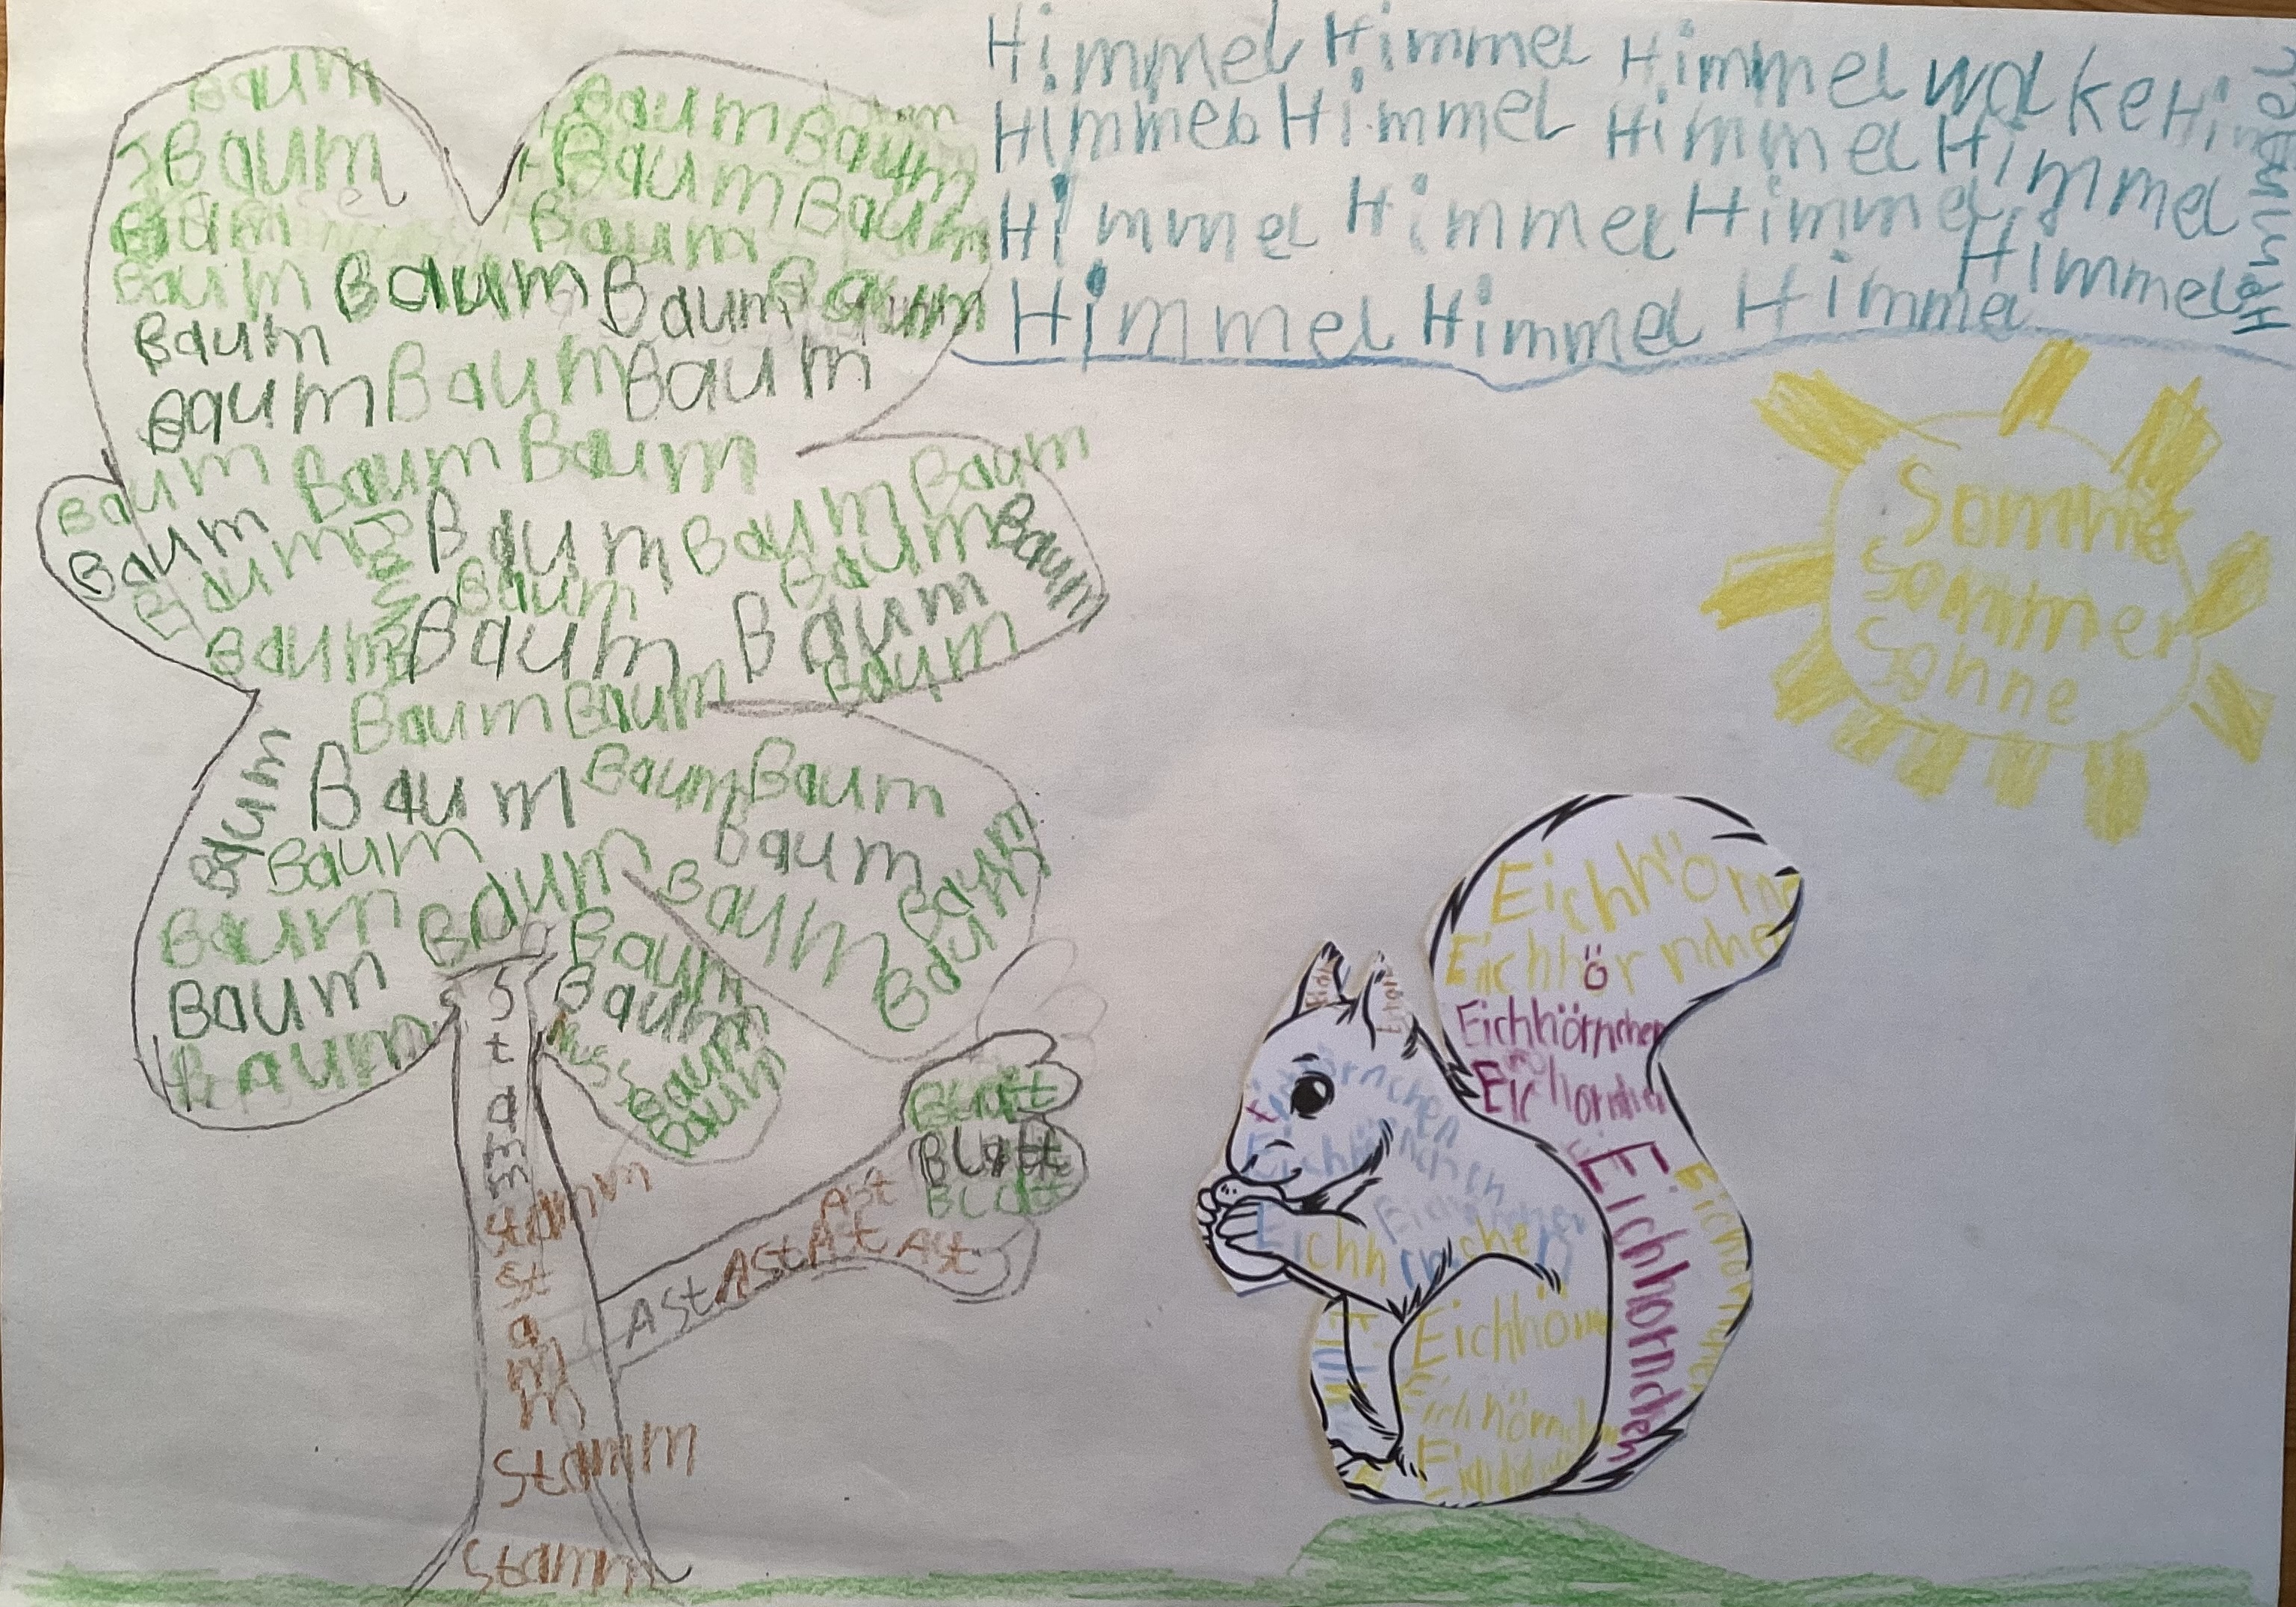 Himmel Himmel Himmel wolke
Himmel Himmel Himmel Himmel
Himmel Himmel Himmel Himmel
Himmel Himmel Himmel
Baum
Baum
Baum Baum
Baum Baum
Baum
Baum
Baum Baum Baum
Baum
Baum Baum Baum
Baum Baum Baum
Baum Baum Baum Baum
Baum Baum Baum
Baum Baum Baum
Baum Baum Baum
Baum Baum
Baum Baum Baum
Baum
Baum Baum
Baum Baum
Baum Baum
Baum Baum
Baum Baum
Baum
Nuss
Baum
Baum
Stamm
Stamm
Stamm
Stamm
Stamm
Ast Ast At Ast
Ast
Blatt
Blatt
Blatt
Sommer
Sommer
Sonne
Eichhörn
Eichhörnchen
Eichhörnchen
Eichhornchen
Eichhorndchen
Eichhörnchen
Eichhörnchen
Eichhörnchen
Eichhörnchen
Eichhörn
Eichhörnchen